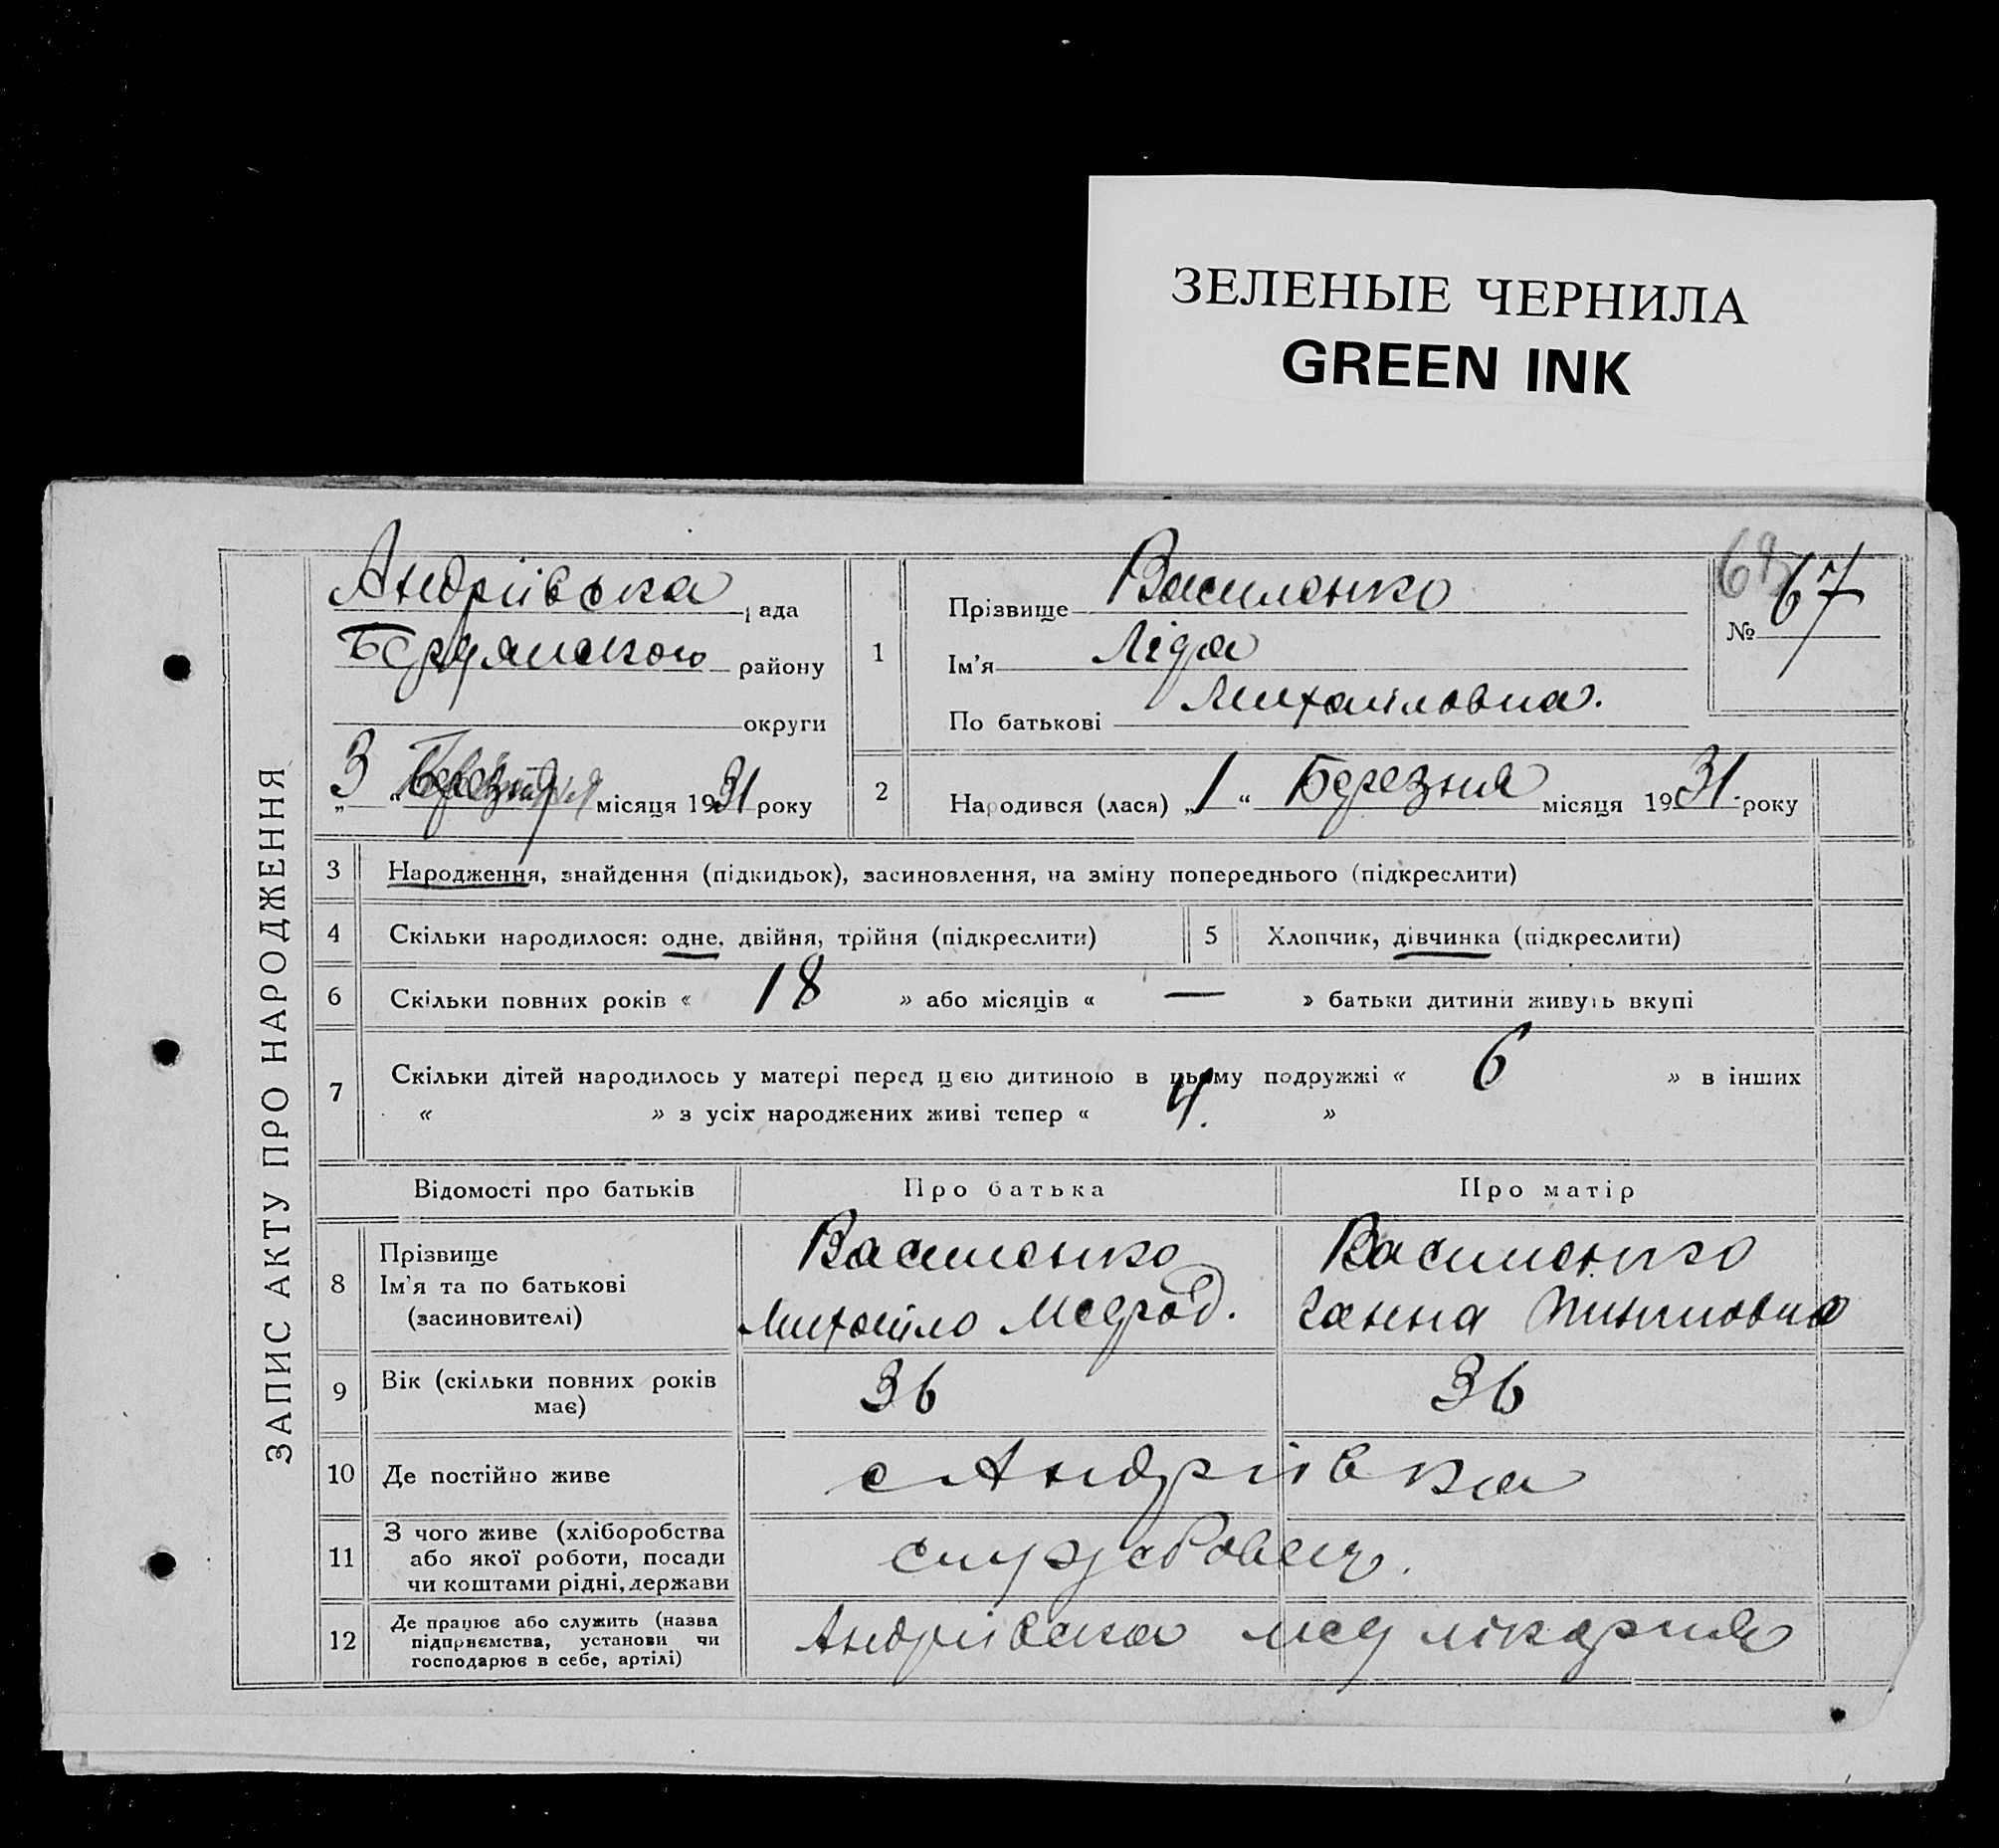 ЗЕЛЕНЫЕ ЧЕРНИЛА
GREEN INK
ЗАПИС АКТУ ПРО НАРОДЖЕННЯ
Андріївська рада
Бердянского району
округи
„3“ Березня місяця 1931 року
1
Прізвище Василенко
Ім'я Ліда
По батькові Михайловна.
№ 67
2 Народився (лася) „1“ Березня місяця 1931. року
3 Народження, знайдення (підкидьок), засиновлення, на зміну попереднього (підкреслити)
4 Скільки народилося: одне, двійня, трійня (підкреслити)
5 Хлопчик, дівчинка (підкреслити)
6 Скільки повних років « 18 » або місяців « — » батьки дитини живуть вкупі
7 Скільки дітей народилось у матері перед цією дитиною в цьому подружжі « 6 » в інших
« » з усіх народжених живі тепер « 4. »
Відомості про батьків Про батька Про матір
8 Прізвище Василенко Василенко
Ім'я та по батькові Михайло Ганна
(засиновителі)
9 Вік (скільки повних років 36 36
має)
10 Де постійно живе с Андріївка
11 З чого живе (хліборобства
або якої роботи, посади службовец.
чи коштами рідні, держави
12 Де працює або служить (назва
підприємства, установи чи Андріівска мед лікарня
господарює в себе, артілі)